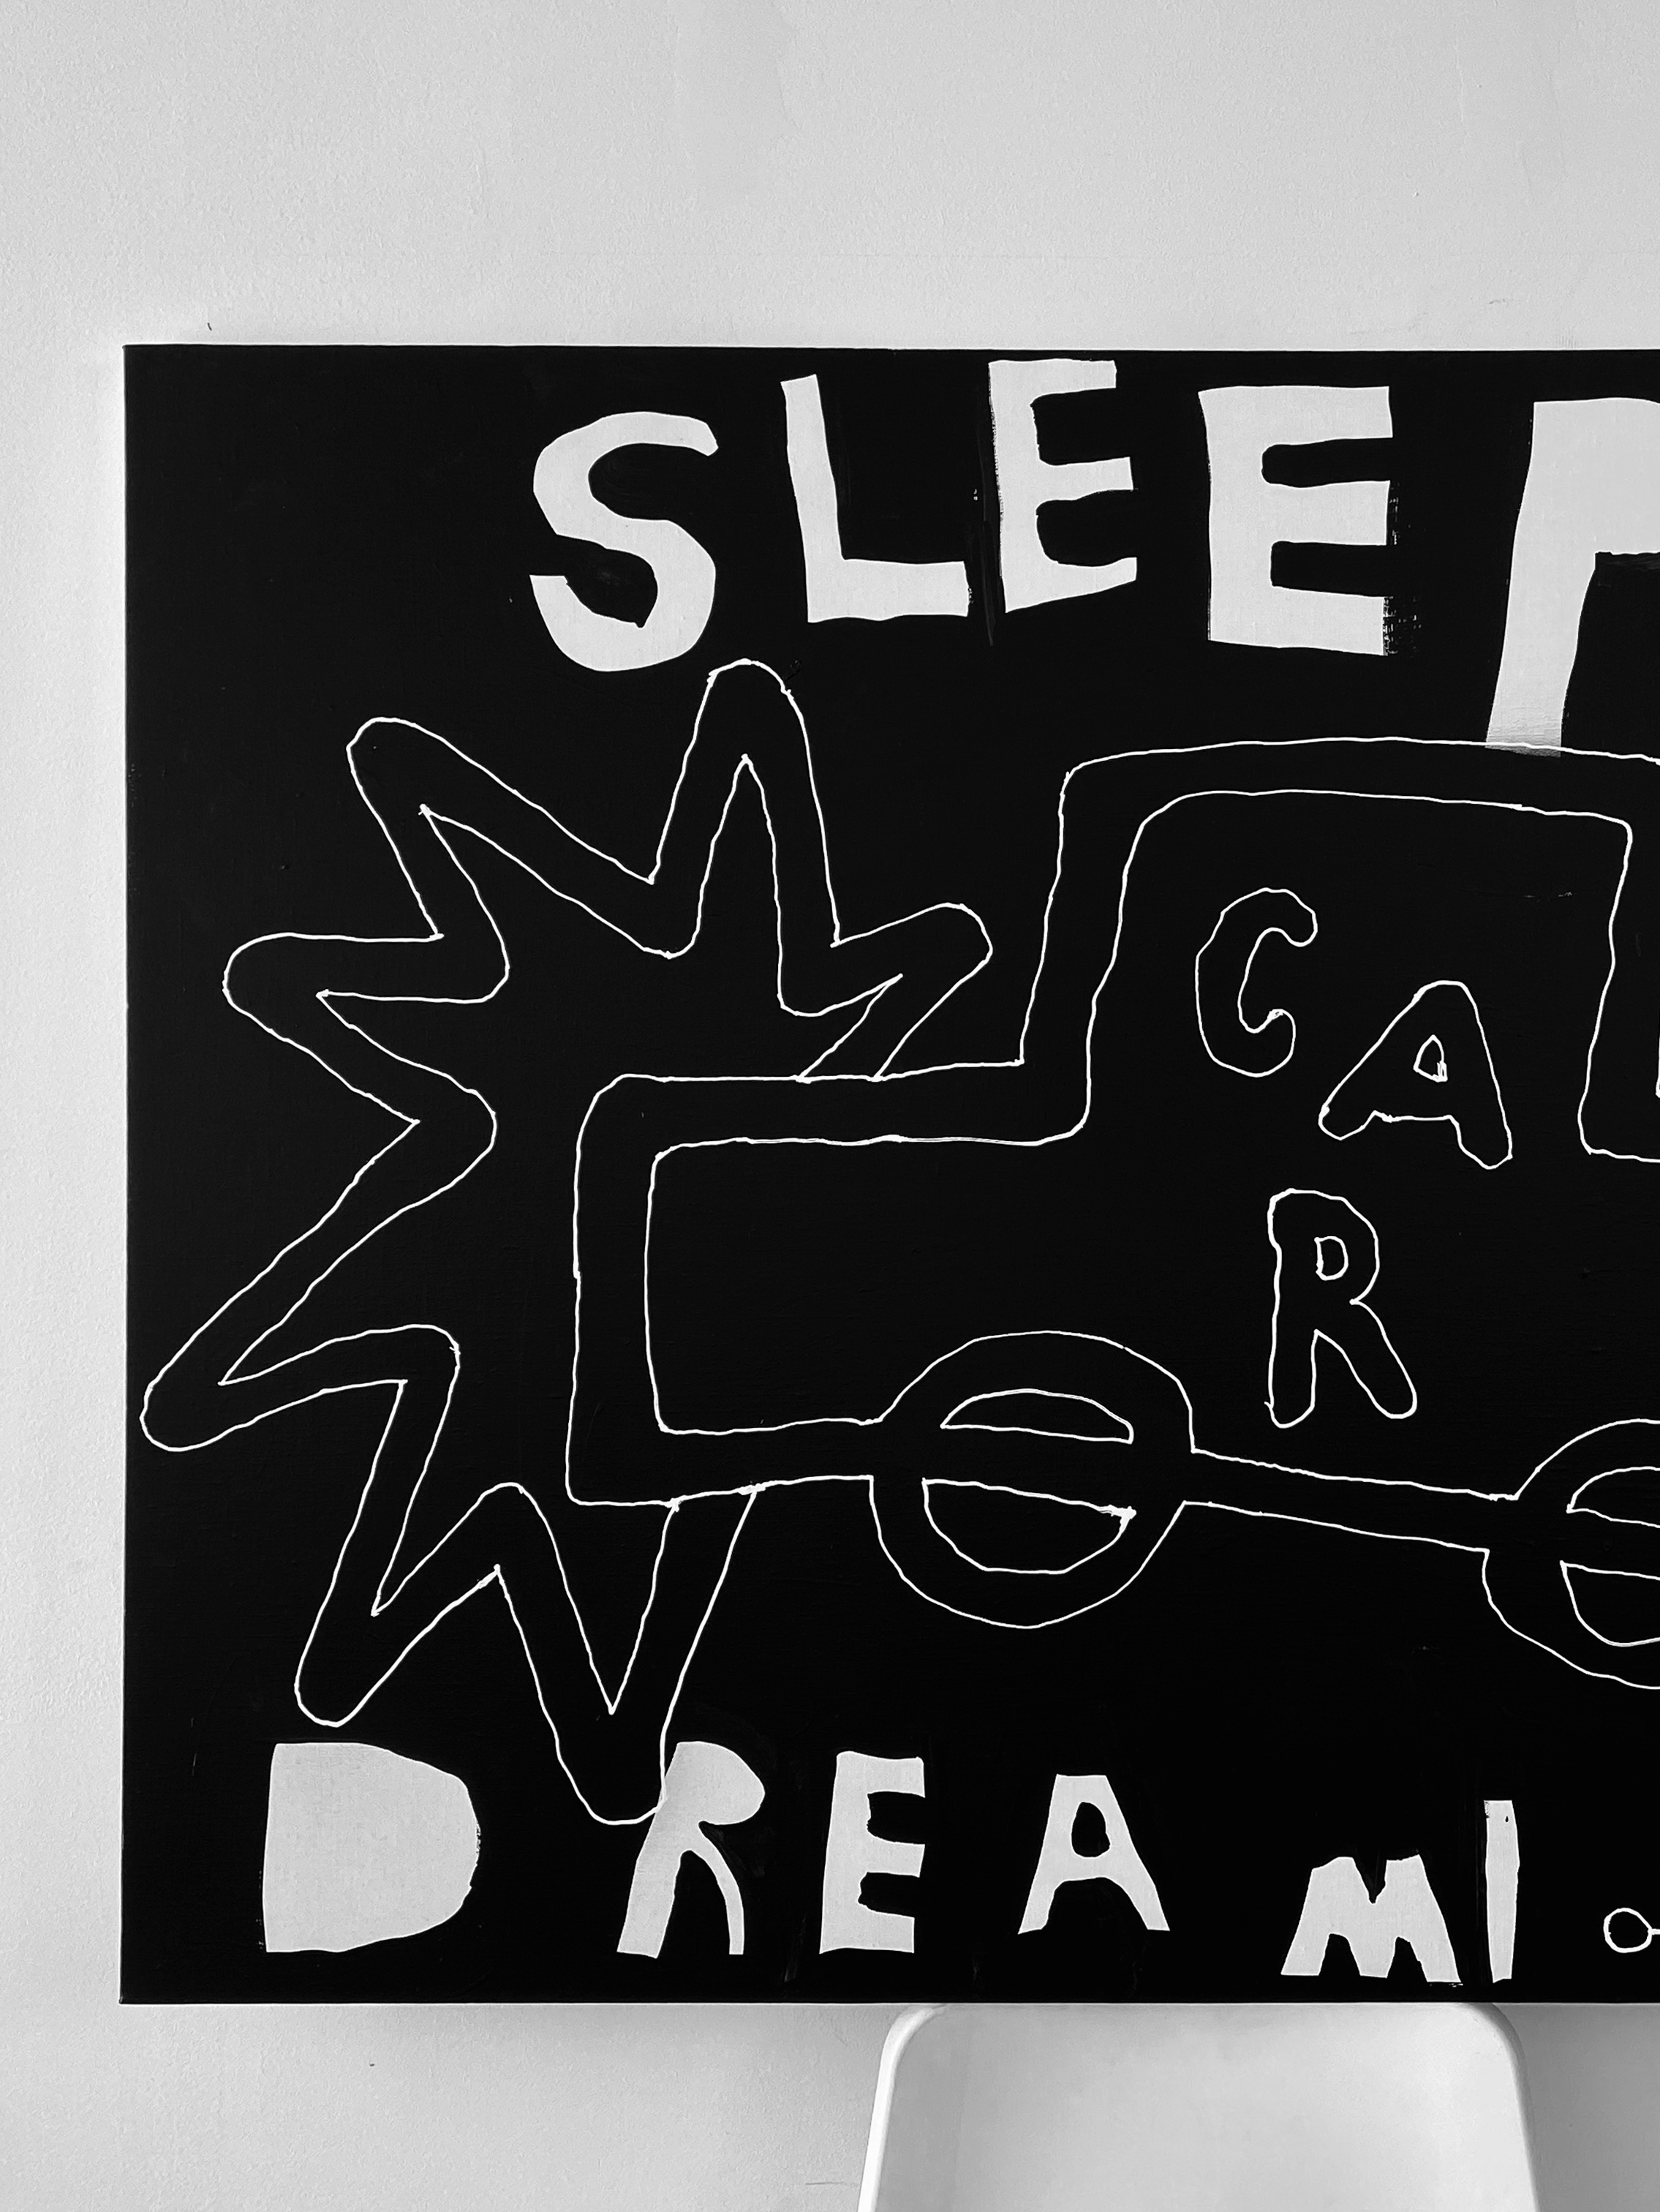 SLEEP
CA
R
DREAMI